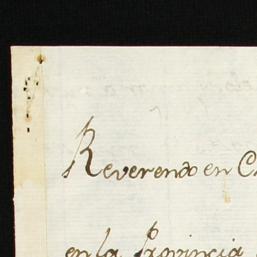 Reverendo en C
en la Provincia